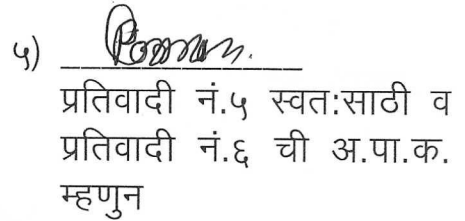 ५)
प्रतिवादी नं.५ स्वत:साठी व
प्रतिवादी नं.६ ची अ.पा.क.
म्हणुन